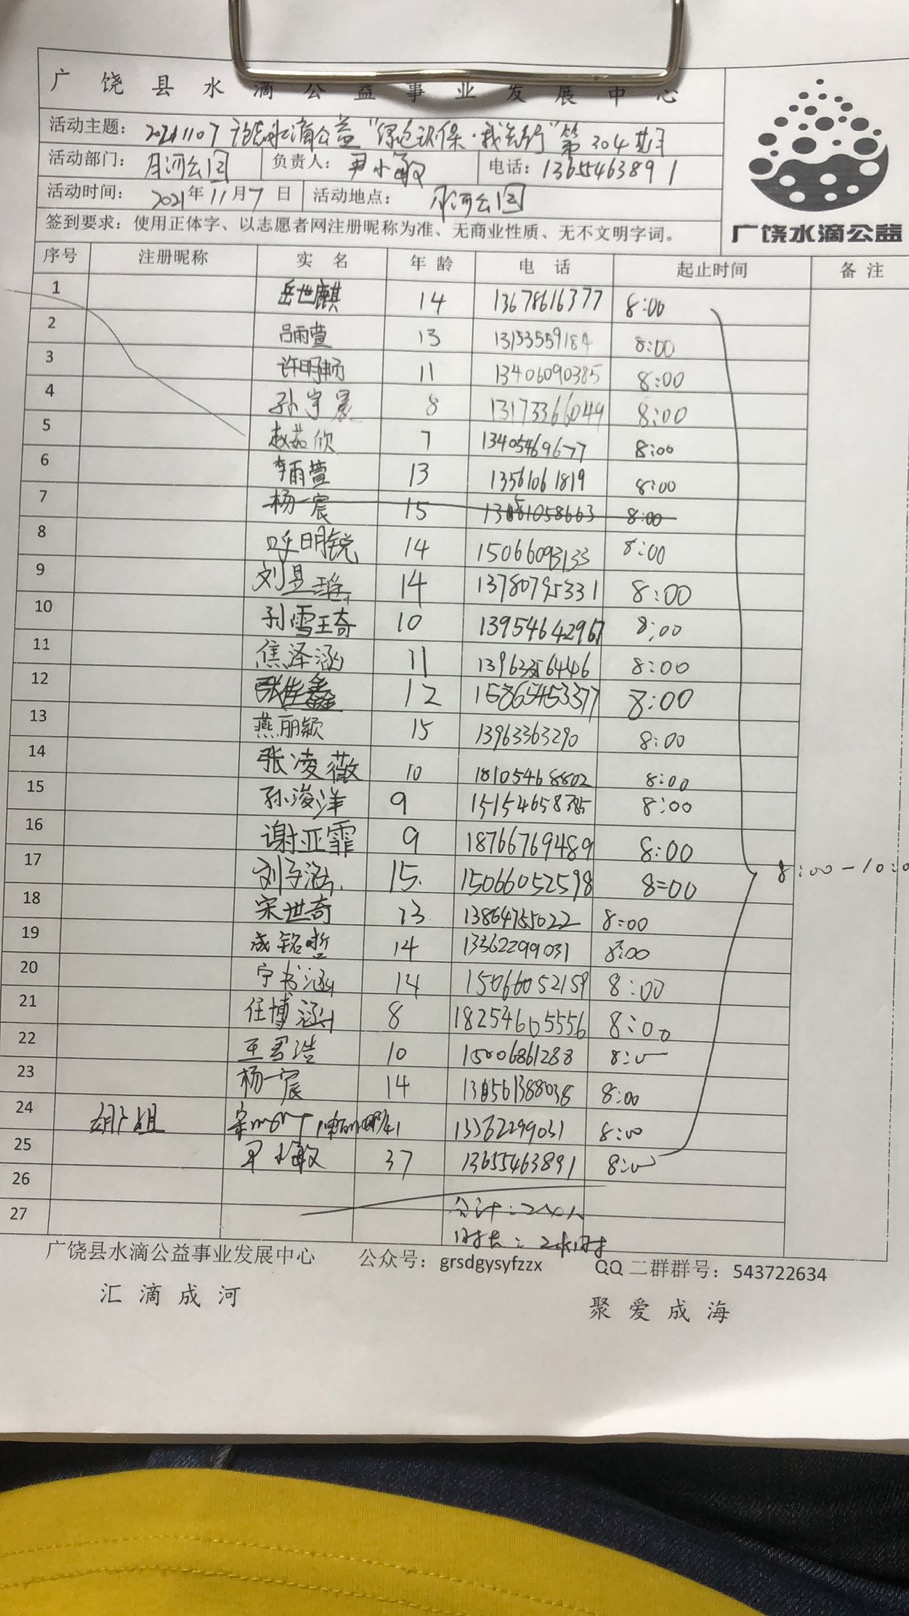 广饶县水滴公益事业发展中心
活动主题： 20211107 水滴公益“绿色环保·我先行”第304期
活动部门： 月河公园 负责人： 尹小敏 电话：13655463891
活动时间： 2021年11月7日 活动地点： 月河公园
签到要求：使用正体字、以志愿者网注册昵称为准、无商业性质、无不文明字词。
广饶水滴公益
序号 注册昵称 实 名 年 龄 电 话 起止时间 备 注
1 岳世麒 14 13678616377 8:00
2 吕雨萱 13 13153559184 8:00
3 许明畅 11 13406090385 8:00
4 孙宇晨 8 13173366049 8:00
5 赵茹欣 7 13405469677 8:00
6 李雨萱 13 13561061819 8:00
7 杨一宸 15 8:00
8 呼明锐 14 15066093133 8:00
9 刘昱 14 13780795331 8:00
10 孙雪琦 10 13954642967 8:00
11 焦泽涵 11 8:00
12 张佳鑫 12 15865453377 8:00
13 燕丽颖 15 13963363290 8:00
14 张凌薇 10 18105468802 8:00
15 孙浚洋 9 8:00
16 谢亚霏 9 18766769489 8:00
17 刘子涵 15. 15066052598 8:00
8:00-10:0
18 宋世奇 13 13864755022 8:00
19 成铭哲 14 13362299031 8:00
20 宁书涵 14 15066052159 8:00
21 任博涵 8 18254605556 8:00
22 王君浩 10 15006861288 8:00
23 杨一宸 14 8:00
24 41 13362299031 8:00
25 尹小敏 37 13655463891 8:00
26 合计：
27 时长：2小时
广饶县水滴公益事业发展中心 公众号：grsdgysyfzzx QQ 二群群号：543722634
汇滴成河 聚爱成海